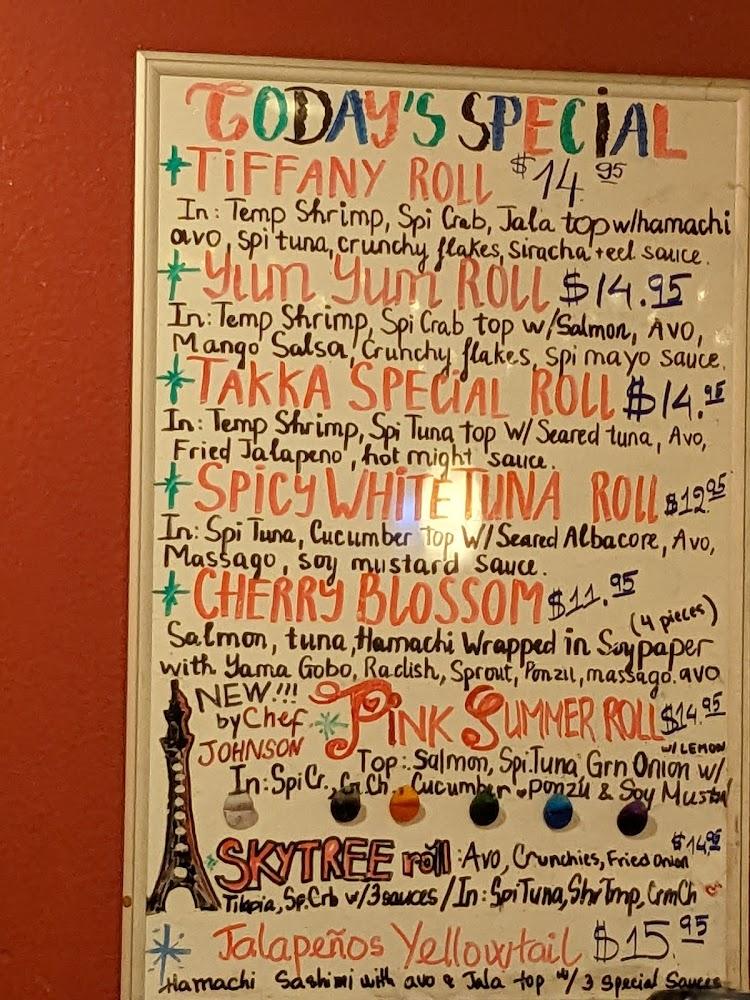 TODAY'S SPECIAL
TiFFANY ROLL $14.95
In: Temp Shrimp, Spi Crab, Jala top w/hamachi
avo, spi tuna, crunchy flakes, siracha + eel sauce.
Yum Yum ROLL $14.95
In: Temp Shrimp, Spi Crab top w/Salmon, Avo,
Mango Salsa, Crunchy flakes, spi mayo sauce.
TAKKA SPECiAL ROLL $14.95
In: Temp Shrimp, Spi Tuna top w/ Seared tuna, Avo,
Fried Jalapeno, hot might sauce.
SPiCY WHiTE TUNA ROLL $12.95
In: Spi Tuna, Cucumber top W/ Seared Albacore, Avo,
Massago, soy mustard sauce.
CHERRY BLOSSOM $11.95
(4 pieces)
Salmon, tuna, Hamachi Wrapped in Soypaper
with Yama Gobo, Radish, Sprout, Ponzu, massago. avo
NEW!!!
by Chef
JOHNSON
PiNK SUMMER ROLL $14.95
W/ LEMON
Top: Salmon, Spi.Tuna, Grn Onion w/
In: Spi Cr., Cr.Ch., Cucumber ponzu & Soy Musta
$14.95
SKYTREE roll: Avo, Crunchies, Fried Onion
Tilapia, Sp.Crb w/3 sauces / In: Spi Tuna, Shr Tmp, Crm Ch
Jalapeños Yellowtail $15.95
Hamachi Sashimi with avo & Jala top w/ 3 special Sauces